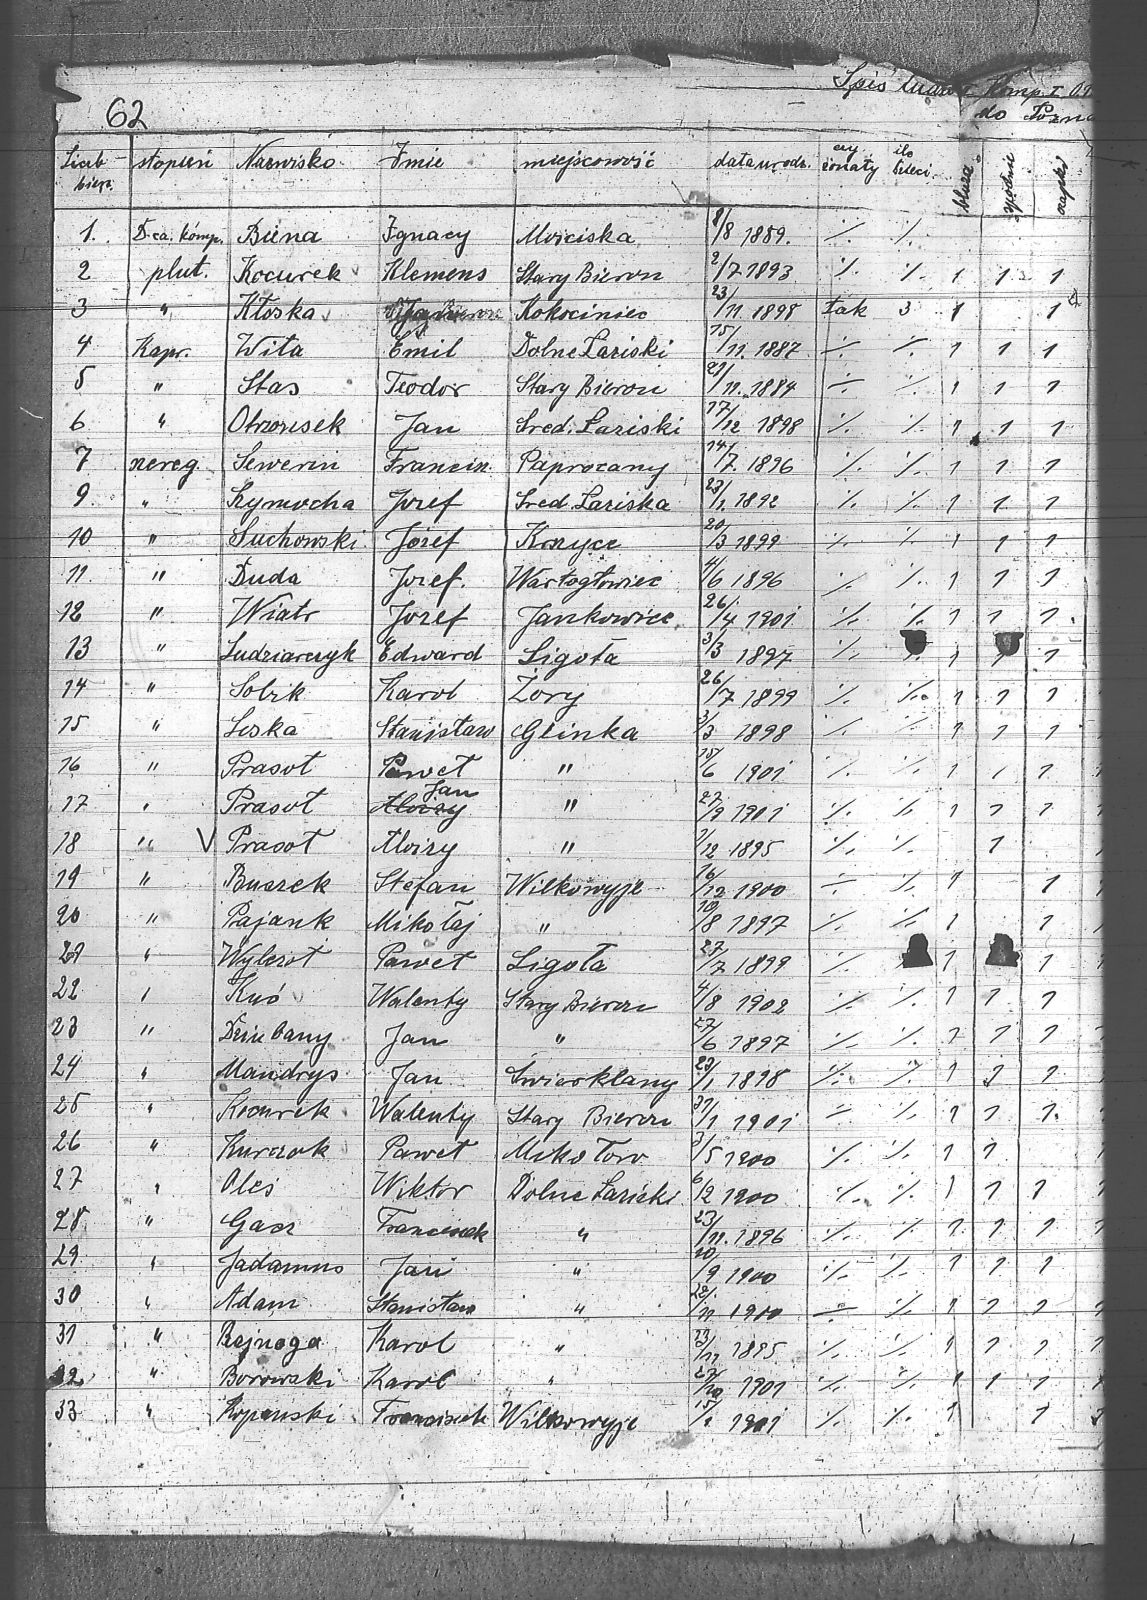 Spis ludzi Komp. I
do Pozna
62
Liczb bierz. stopień Nazwisko Imie miejscowość data urodz. czy żonaty ile dzieci bluza spodnie czapki
1. D-ca. komp. Biena Ignacy Mościska 8/8 1889. ·/. ·/.
2 plut. Kocurek Klemens Stary Bieron 2/7 1893 ·/. ·/. 1 1 1
3 " Kłoska Kokociniec 23/11. 1898 tak 3 1 1
4 Kapr. Wita Emil Dolne Laziski 15/11. 1887 ·/. ·/. 1 1 1
5 " Stas Teodor Stary Bieron 21/11. 1884 ·/. ·/. 1 1 1
6 " Jan Sred. Laziski 17/12 1898 ·/. ·/. 1 1 1
7 szereg. Sewerin Francisz. Paprocany 14/7. 1896 ·/. ·/. 1 1 1
9. " Szymocha Jozef Sred. Laziska 23/1. 1892 ·/. ·/. 1 1 1
10 " Suchowski Józef 20/3 1899 ·/. ·/. 1 1 1
11. " Duda Jozef. Wartogłowiec 4/6 1896 ·/. ·/. 1 1 1
12 " Wiatr Jozef Jankowice 26/4 1901 ·/. ·/. 1 1 1
13 " Ludziarczyk Edward Ligota 3/3 1897 ·/. 1 1 1
14 " Sobik Karol Żory 26/7 1899 ·/. ·/. 1 1 1
15 " Leska Stanisław Glinka 3/3 1898 ·/. ·/. 1 1 1
16 " Prasoł Paweł " 15/6 1901 ·/. ·/. 1 1 1
17 " Prasoł Jan " 27/9 1901 ·/. ·/. 1 1 1
18 " V Prasoł Aloizy " 1/12 1895 ·/. ·/. 1
19 " Buszek Stefan Wilkowyje 16/12 1900 ·/. ·/. 1 1
20 " Pajank Mikołaj " 10/8 1897 ·/. ·/. 1 1
21 " Wyleżoł Paweł Ligota 27/7 1899 ·/. 1 1
22 " Kuś Walenty Stary Bieron 4/8 1902 ·/. ·/. 1 1 1
23 " Dziubany Jan " 27/6 1897 ·/. ·/. 1 1 1
24 " Mandrys Jan Swierklany 23/1 1898 ·/. ·/. 1 1 1
25 " Kocurek Walenty Stary Bieron 31/1 1901 ·/. ·/. 1 1 1.
26 " Kurczok Paweł Mikołow 3/5 1900 ·/. ·/. 1 1
27 " Oleś Wiktor Dolne Laziski 6/2 1900 ·/. ·/. 1 1 1
28 " Gacz Franciszek " 23/11. 1896 ·/. ·/. 1 1 1
29 " Jadamus Jan " 10/9 1900 ·/. ·/. 1 1 1
30 " Adam Stanisław " 22/11 1900 ·/. ·/. 1 1 1
31 " Rejnoga Karol " 13/11 1895 ·/. ·/. 1 1 1
32 " Borowski Karol " 27/10 1901 ·/. ·/. 1 1 1
33 " Kopanski Franciszek Wilkowyje 1901 ·/. ·/. 1 1